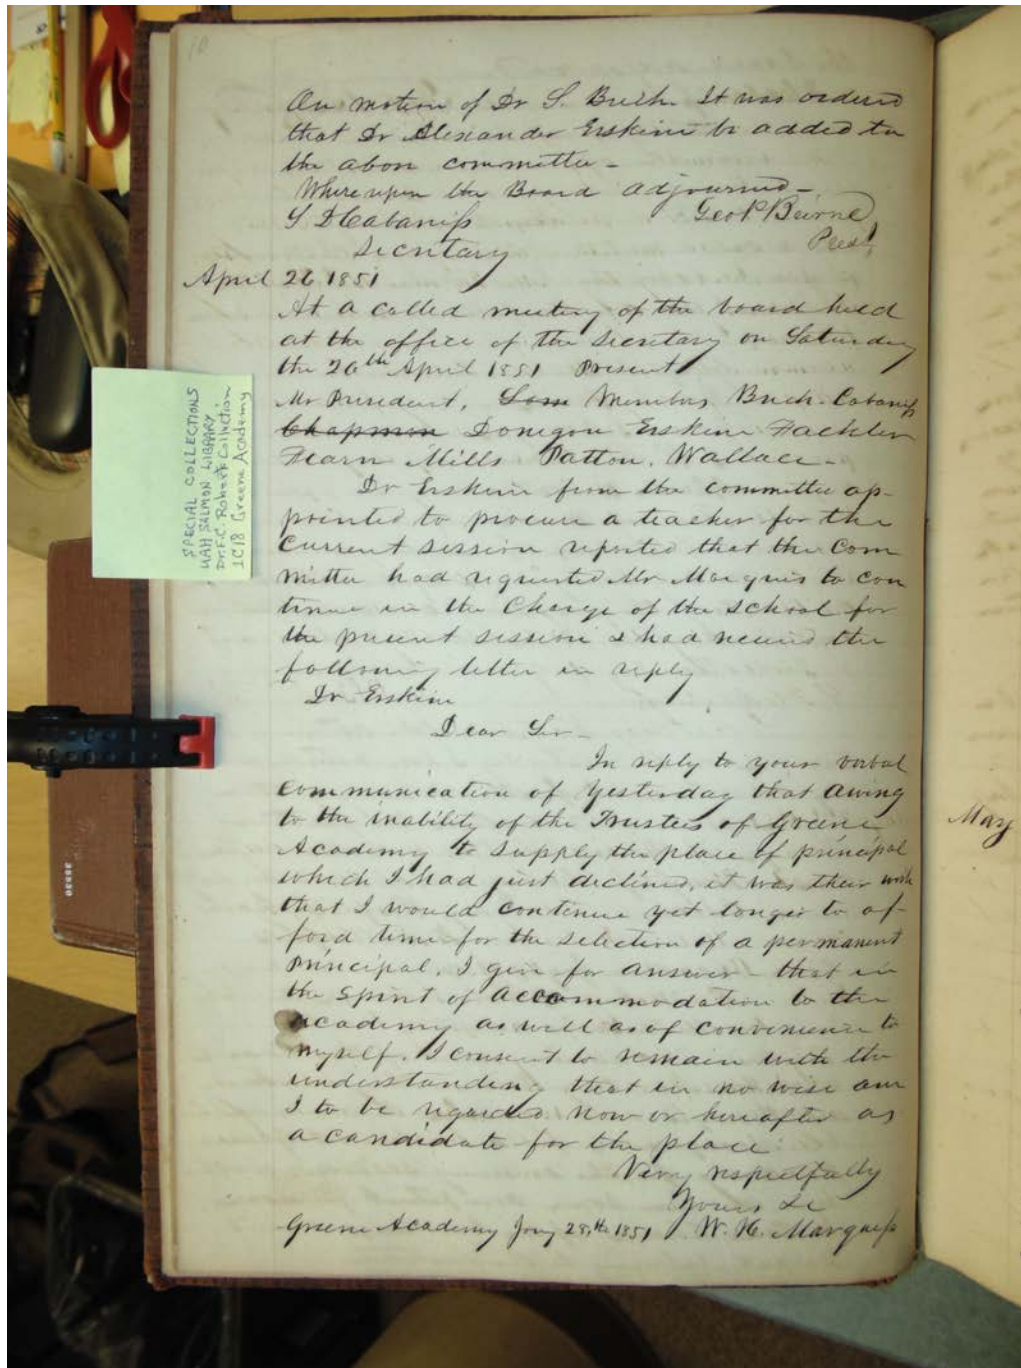 10
On motion of Dr S. Breck. It was ordered
that Dr Alexander Erskine be added to
the above committee -
Whereupon the Board adjourned -
S D Cabaniss
Geo P Beirne
Secretary
Prest
April 26 1851
At a called meeting of the board held
at the office of the Secretary on Saturday
the 26th April 1851 Present
Mr President, Members Breck. Cabaniss
Chapman Donegan Erskine Fackler
Fearn Mills Patton. Wallace -
Dr Erskine from the committee ap-
pointed to procure a teacher for the
current session reported that the Com
mittee had requested Mr Marquis to con
tinue in the Charge of the School for
the present session & had received the
following letter in reply
Dr Erskine
Dear Sir -
In reply to your verbal
communication of Yesterday that owing
to the inability of the Trustees of Greene
Academy to supply the place of principal
which I had just declined, it was their wish
that I would continue yet longer to af-
ford time for the selection of a permanent
Principal. I give for answer - that in
the spirit of accommodation to the
academy as well as of convenience to
myself. I consent to remain with the
understanding that in no wise am
I to be regarded now or hereafter as
a candidate for the place.
Very respectfully
Yours &c
Greene Academy Jany 28th 1851 W. H. Marquiss
SPECIAL COLLECTIONS
UAH SALMON LIBRARY
Dr. F.C. Roberts Collection
1C18 Greene Academy
May